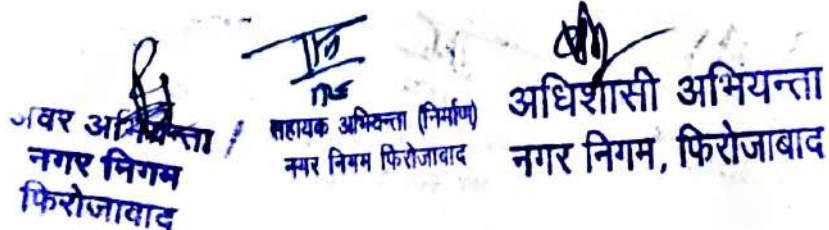 अवर अभियन्ता
नगर निगम
फिरोजाबाद
सहायक अभियन्ता (निर्माण)
नगर निगम फिरोजाबाद
अधिशासी अभियन्ता
नगर निगम, फिरोजाबाद